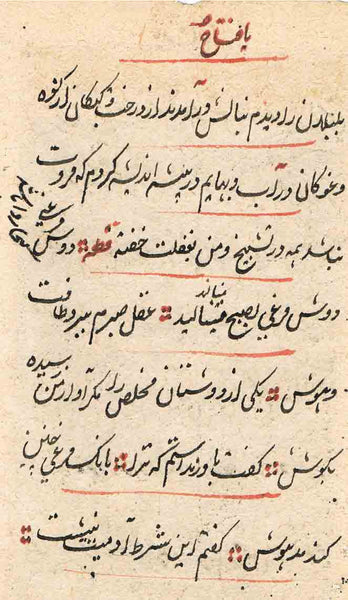 یا فتاح
بلبلان را دیدم بنالش درآمدند از درخت و کبکان از کوه
و غوکان در آب و بهایم در بیشه اندیشه کردم که مروت
نباشد همه در تسبیح و من بغفلت خفته قطعه دوش
دوش مرغی بصبح مینالید عقل صبرم ببرد و طاقت
و هوش یکی از دوستان مخلص را مگر آواز من رسیده
بگوش گفت باور نداشتم که ترا بانک مرغی چنین
کند مدهوش گفتم این شرط آدمیت نیست